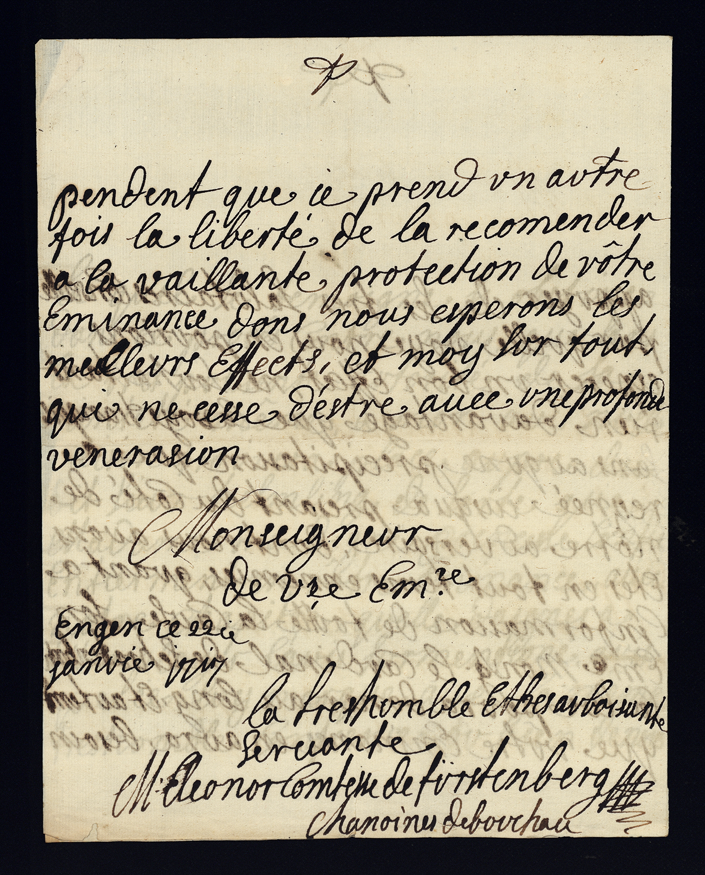 pendent que ie prend vn autre
fois la liberté de la recomender
a la vaillante protection de vôtre
Eminance dons nous esperons les
meilleurs Effects, et moy sur tout
qui ne cesse d'éstre auec vne profonde
venerasion
Monseigneur
de vre Em.re
Engen ce 22ie
janvie 1717
la treshomble Et tresaubaisante
servante
M: Eleonor Comtesse de fürstenberg
Chanoines de bouchau